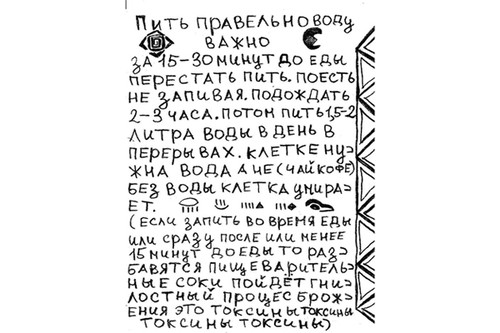 ПИТЬ ПРАВЕЛЬНО ВОДУ
ВАЖНО
ЗА 15-30 МИНУТ ДО ЕДЫ
ПЕРЕСТАТЬ ПИТЬ. ПОЕСТЬ
НЕ ЗАПИВАЯ. ПОДОЖДАТЬ
2-3 ЧАСА. ПОТОМ ПИТЬ 1,5-2
ЛИТРА ВОДЫ В ДЕНЬ В
ПЕРЕРЫВАХ. КЛЕТКЕ НУ-
ЖНА ВОДА А НЕ (ЧАЙ КОФЕ)
БЕЗ ВОДЫ КЛЕТКА УМИРА-
ЕТ.
(ЕСЛИ ЗАПИТЬ ВО ВРЕМЯ ЕДЫ
ИЛИ СРАЗУ ПОСЛЕ ИЛИ МЕНЕЕ
15 МИНУТ ДО ЕДЫ ТО РАЗ-
БАВЯТСЯ ПИЩЕВАРИТЕЛЬ-
НЫЕ СОКИ ПОЙДЁТ ГНИ-
ЛОСТНЫЙ ПРОЦЕС БРОЖ-
ЕНИЯ ЭТО ТОКСИНЫ ТОКСИНЫ
ТОКСИНЫ ТОКСИНЫ)